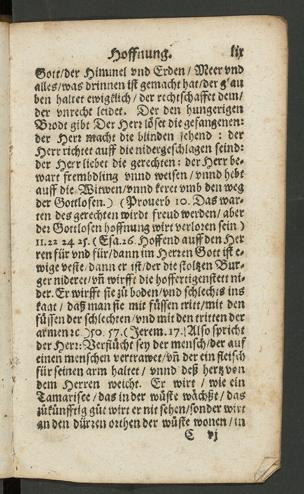 Hoffnung. lix
Gott/der Himmel vnd Erden/ Meer vnd
alles/was drinnen ist gemacht hat/der glau
ben haltet ewigklich/ der rechtschaffet dem/
der vnrecht leidet. Der den hungerigen
Brodt gibt Der Herr löset die gefangenen:
der Herr macht die blinden sehend : der
Herr richtet auff die nidergeschlagen seind:
der Herr liebet die gerechten: der Herr be-
wart frembdling vnnd weisen/ vnnd hebt
auff die Witwen/vnnd keret vmb den weg
der Gottlosen.) (Prouerb 10. Das war-
ten des gerechten wirdt freud werden/ aber
der Gottlosen hoffnung wirt verloren sein)
11.22 24.25. (Esa.26. Hoffend auff den Her
ren für vnd für/dann im Herren Gott ist e-
wige veste/ dann er ist/der die stolzen Bur-
ger nideret/vñ wirfft die hoffertigen stett ni-
der. Er wirfft sie zu boden/vnd schlecht s ins
kaat/ daß man sie mit füssen tritt/mit den
füssen der schlechten/ vnd mit den tritten der
armen ꝛc) 50. 57. (Jerem. 17. Also spricht
der Herr: Verflücht sey der mensch/der auff
einen menschen vertrawet/vñ der ein fleisch
für seinen arm haltet/ vnnd deß hertz von
dem Herren weicht. Er wirt / wie ein
Tamarisee/das in der wüste wächßt/ das
zükünfftig güt wirt er nit sehen/sonder wirt
an den dürren orthen der wüste wonen/in
C vj